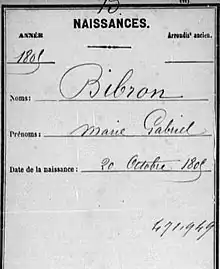 NAISSANCES.
ANNÉE Arrondis^t ancien.
1805
Noms: Bibron
Prénoms: Marie Gabriel
Date de la naissance: 20 Octobre 1805
471949